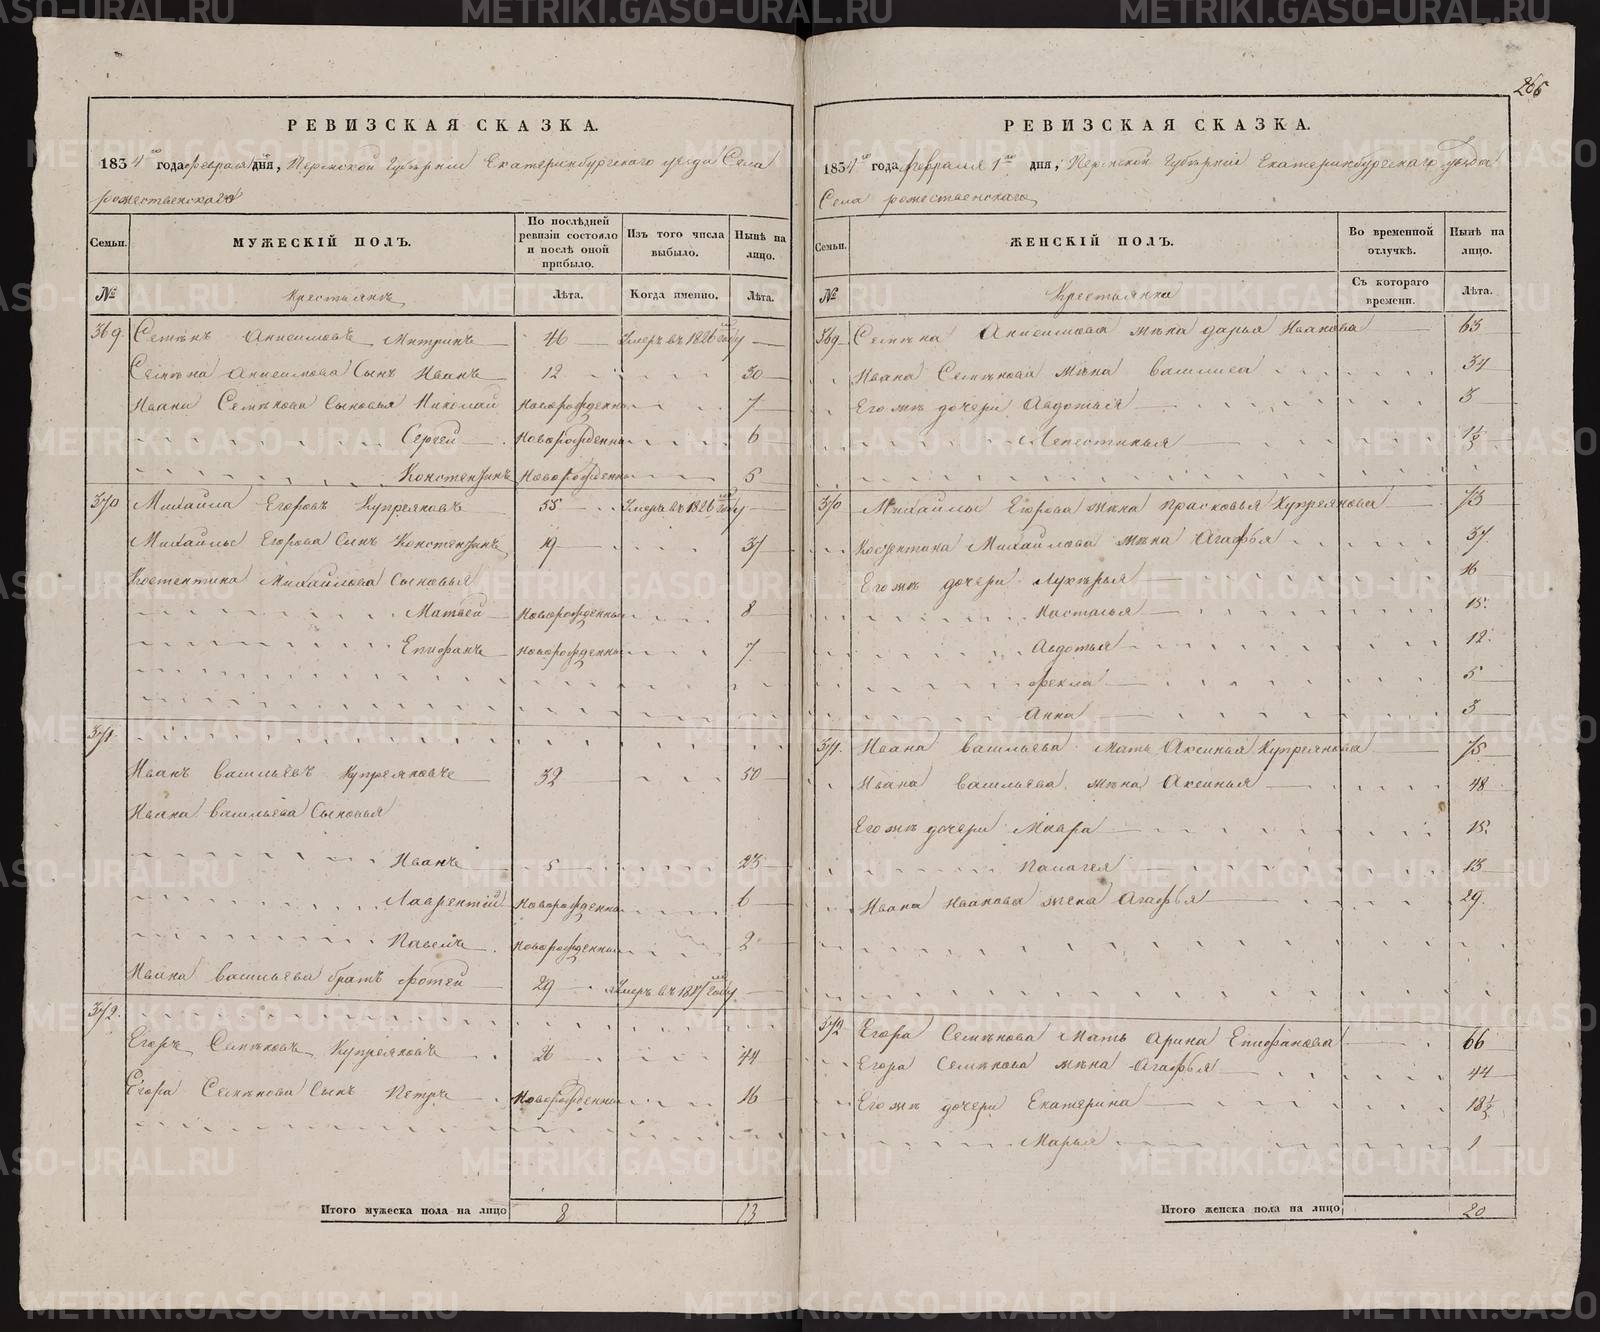 РЕВИЗСКАЯ СКАЗКА.
1834го года февраля дня, Пермской Губернии Екатеринбургского уезда Села
рожественского
Семьи.
МУЖЕСКІЙ ПОЛЪ.
По послѣдней ревизіи состояло и послѣ оной прибыло.
Изъ того числа выбыло.
Нынѣ на лицо.
№
Крестьянъ
Лѣта.
Когда именно.
Лѣта.
369. Семенъ Анисимовъ Митринъ 46 Умеръ въ 1826 году
Семѣна Анисимова Сынъ Иванъ 12 30
Ивана Семѣнова Сыновья Николай Новорожденны 7
Сергей Новорожденны 6
Констентинъ Новорожденны 5
370 Михайла Егоровъ Купреяновъ 55 Умеръ въ 1826 году
Михайлы Егорова Сынъ Констентинъ 19 37
Костентина Михайлова Сыновья
Матвей Новорожденны 8
Епифанъ Новорожденны 7
371.
Иванъ Васильевъ Купреяновъ 32 50
Ивана Васильева Сыновья
Иванъ 5 23
Лаврентий Новорожденны 6
Павелъ Новорожденны 2
Ивана Васильева братъ Фотей 29 Умеръ въ 1817 году
372.
Егоръ Семѣновъ Купреяновъ 26 44
Егора Семѣнова Сынъ Петръ Новорожденны 16
Итого мужеска пола на лицо 8 13
266
РЕВИЗСКАЯ СКАЗКА.
1834го года февраля 1го дня, Пермской Губерній Екатеринбургского уезда
Села рожественского
Семьи.
ЖЕНСКІЙ ПОЛЪ.
Во временной отлучкѣ.
Нынѣ на лицо.
№
Крестьянки
Съ котораго времени.
Лѣта.
369. Семѣна Анисимова жѣна дарья Иванова 63
Ивана Семѣнова жѣна Василиса 34
Его жѣ дочери Авдотья 3
Лепестинья 1½
370 Михайлы Егорова жѣна Прасковья Купреянова 73
Костентина Михайлова жѣна Агафья 37
Его жѣ дочери Лукерья 16
Настасья 15.
Авдотья 12.
Фекла 5
Анна 3
371. Ивана Васильева Мать Аксинья Купреянова 75
Ивана Васильева жѣна Аксинья 48
Его жѣ дочери Мавра 15.
Палагея 13
Ивана Иванова жена Агафья 29.
372 Егора Семѣнова Мать Арина Епифанова 66
Егора Семѣнова жѣна Агафья 44
Его жѣ дочери Екатерина 18½
Марья 1
Итого женска пола на лицо 20
METRIKI.GASO-URAL.RU